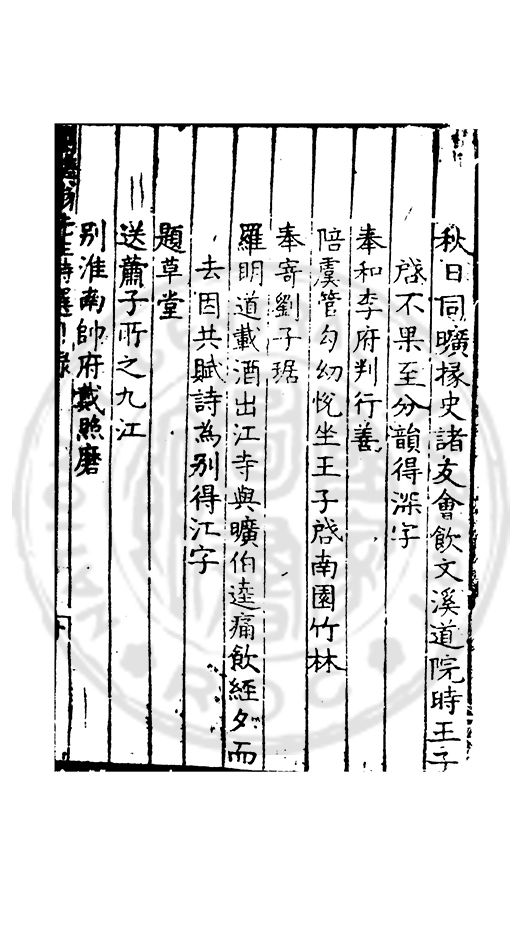 秋日同曠掾史諸友會飲文溪道院時王子
啓不果至分韻得深字
奉和李府判行善
陪虞管勾幼悅坐王子啓南園竹林
奉寄劉子琚
羅明道載酒出江寺與曠伯逵痛飲經夕而
去因共賦詩為別得江字
題草堂
送蕭子所之九江
別淮南帥府戴照磨
先生詩選目錄